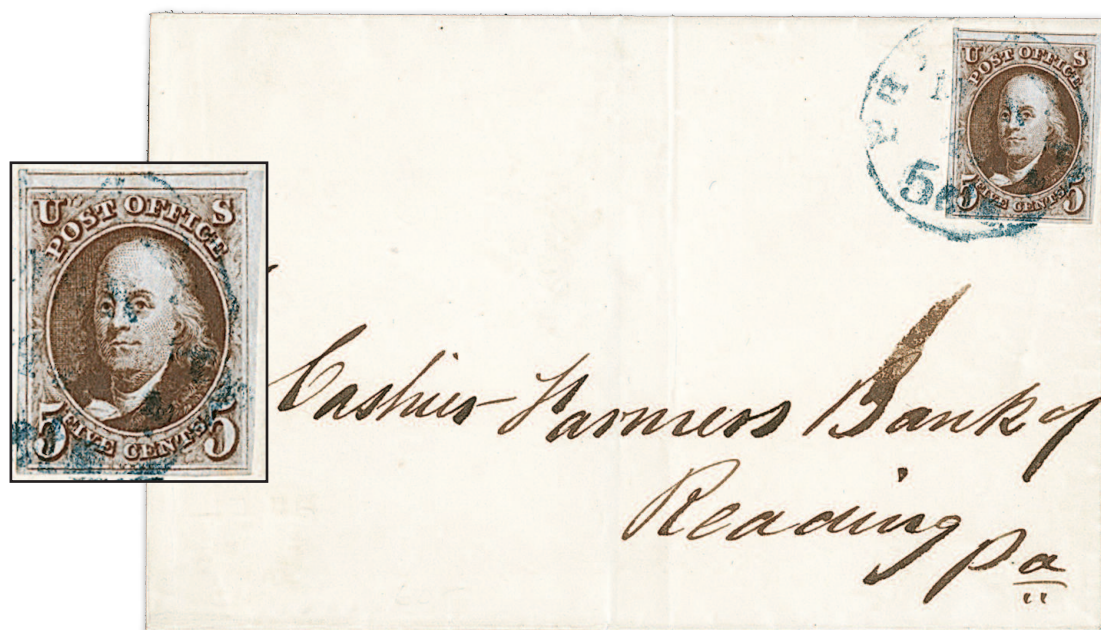 U S
POST OFFICE
5 FIVE CENTS 5
5cts
U S
POST OFFICE
5 FIVE CENTS 5
Cashier Farmers Bank of
Reading Pa